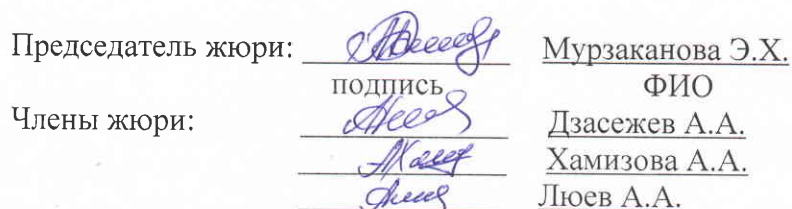 Председатель жюри: Мурзаканова Э.Х.
подпись ФИО
Члены жюри: Дзасежев А.А.
Хамизова А.А.
Люев А.А.